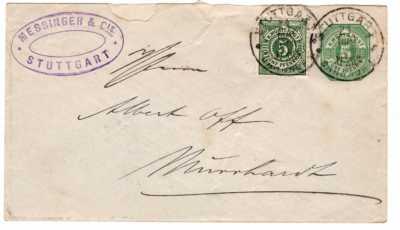 MESSINGER & CIE.
STUTTGART
STUTTGART
5
STUTTGART
5
Herrn
Albert Off
Murrhardt